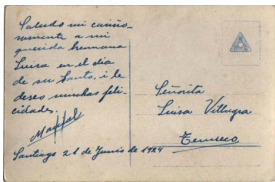 Saludo mi cariño-
samente a mi
querida hermana
Luisa en el día
de su Santo, i le
deseo muchas feli-
cidades.
Santiago 21 de Junio de 1924
Señorita
Luisa Villagra
Temuco